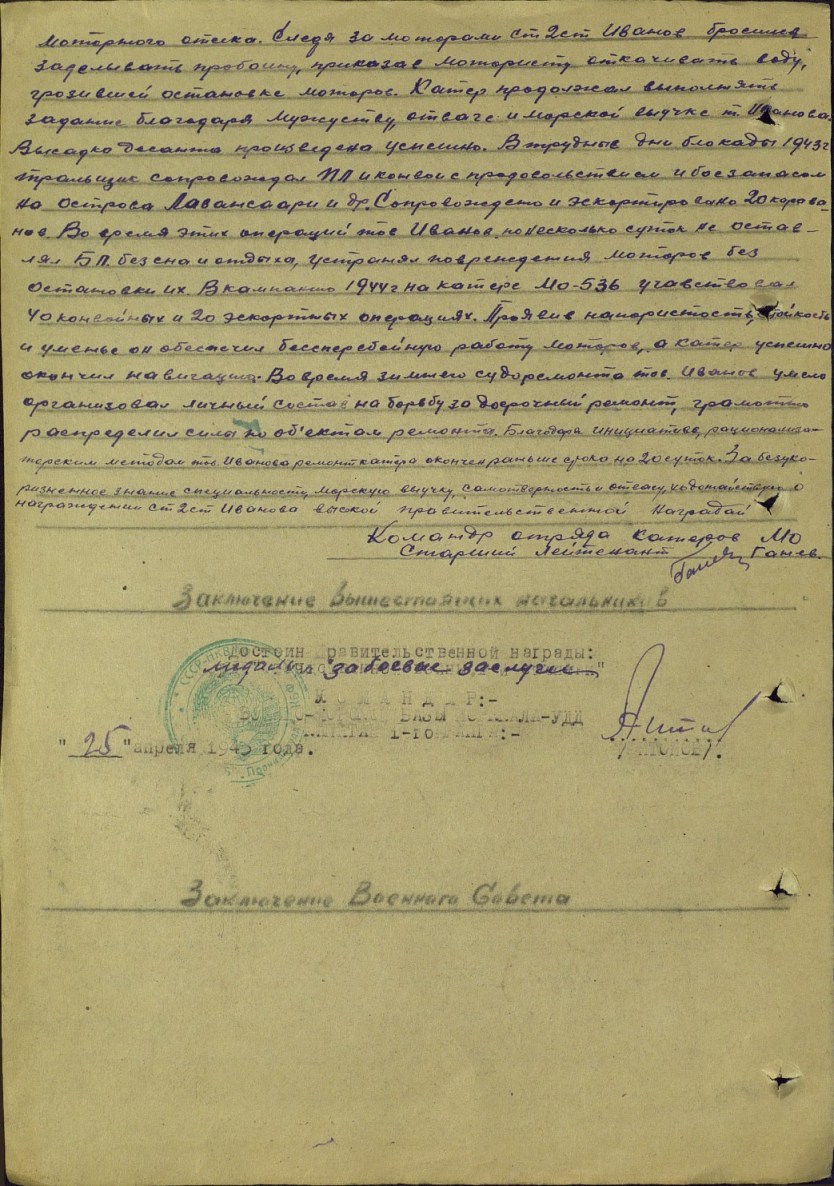 моторного отсека. Следя за моторами ст 2ст Иванов бросился
заделывать пробоину, приказав мотористу откачивать воду,
грозившей остановке моторов. Катер продолжал выполнять
задание благодаря мужеству, отваге и морской выучке т. Иванова.
Высадка десанта произведена успешно. В трудные дни блокады 1943г
тральщик сопровождал ПЛ и конвои с продовольствием и боезапасом
на острова Лавансаари и др. Сопровождено и эскортировано 20 карава-
нов. Во время этих операций тов Иванов по несколько суток не остав-
лял БП. без сна и отдыха, устранял повреждения моторов без
остановки их. В кампанию 1944г на катере МО-536 учавствовал
40 конвойных и 20 эскортных операциях. Проявив напористость, стойкость
и уменье он обеспечил бессперебойную работу моторов, а катер успешно
окончил навигацию. Во время зимнего судоремонта тов. Иванов умело
организовал личный состав на борьбу за досрочный ремонт, грамотно
распределил силы по об'ектам ремонта. Благодаря инициативе, рационализа-
торским методам тов. Иванова ремонт катера окончен раньше срока на 20 суток. За безуко-
ризненное знание специальности, морскую выучку, самотверность и отвагу, ходотайствую о
награждении ст 2ст Иванова выской правительственной наградой
Командр отряда катеров МО
Старший Лейтенант Ганев.
Заключение вышестоящих начальников
Достоин Правительственной награды:
медаль "за боевые заслуги"
КОМАНДИР:-
Базы
1-го ранга:-
"25" апреля 1945 года.
Заключение Военного Совета